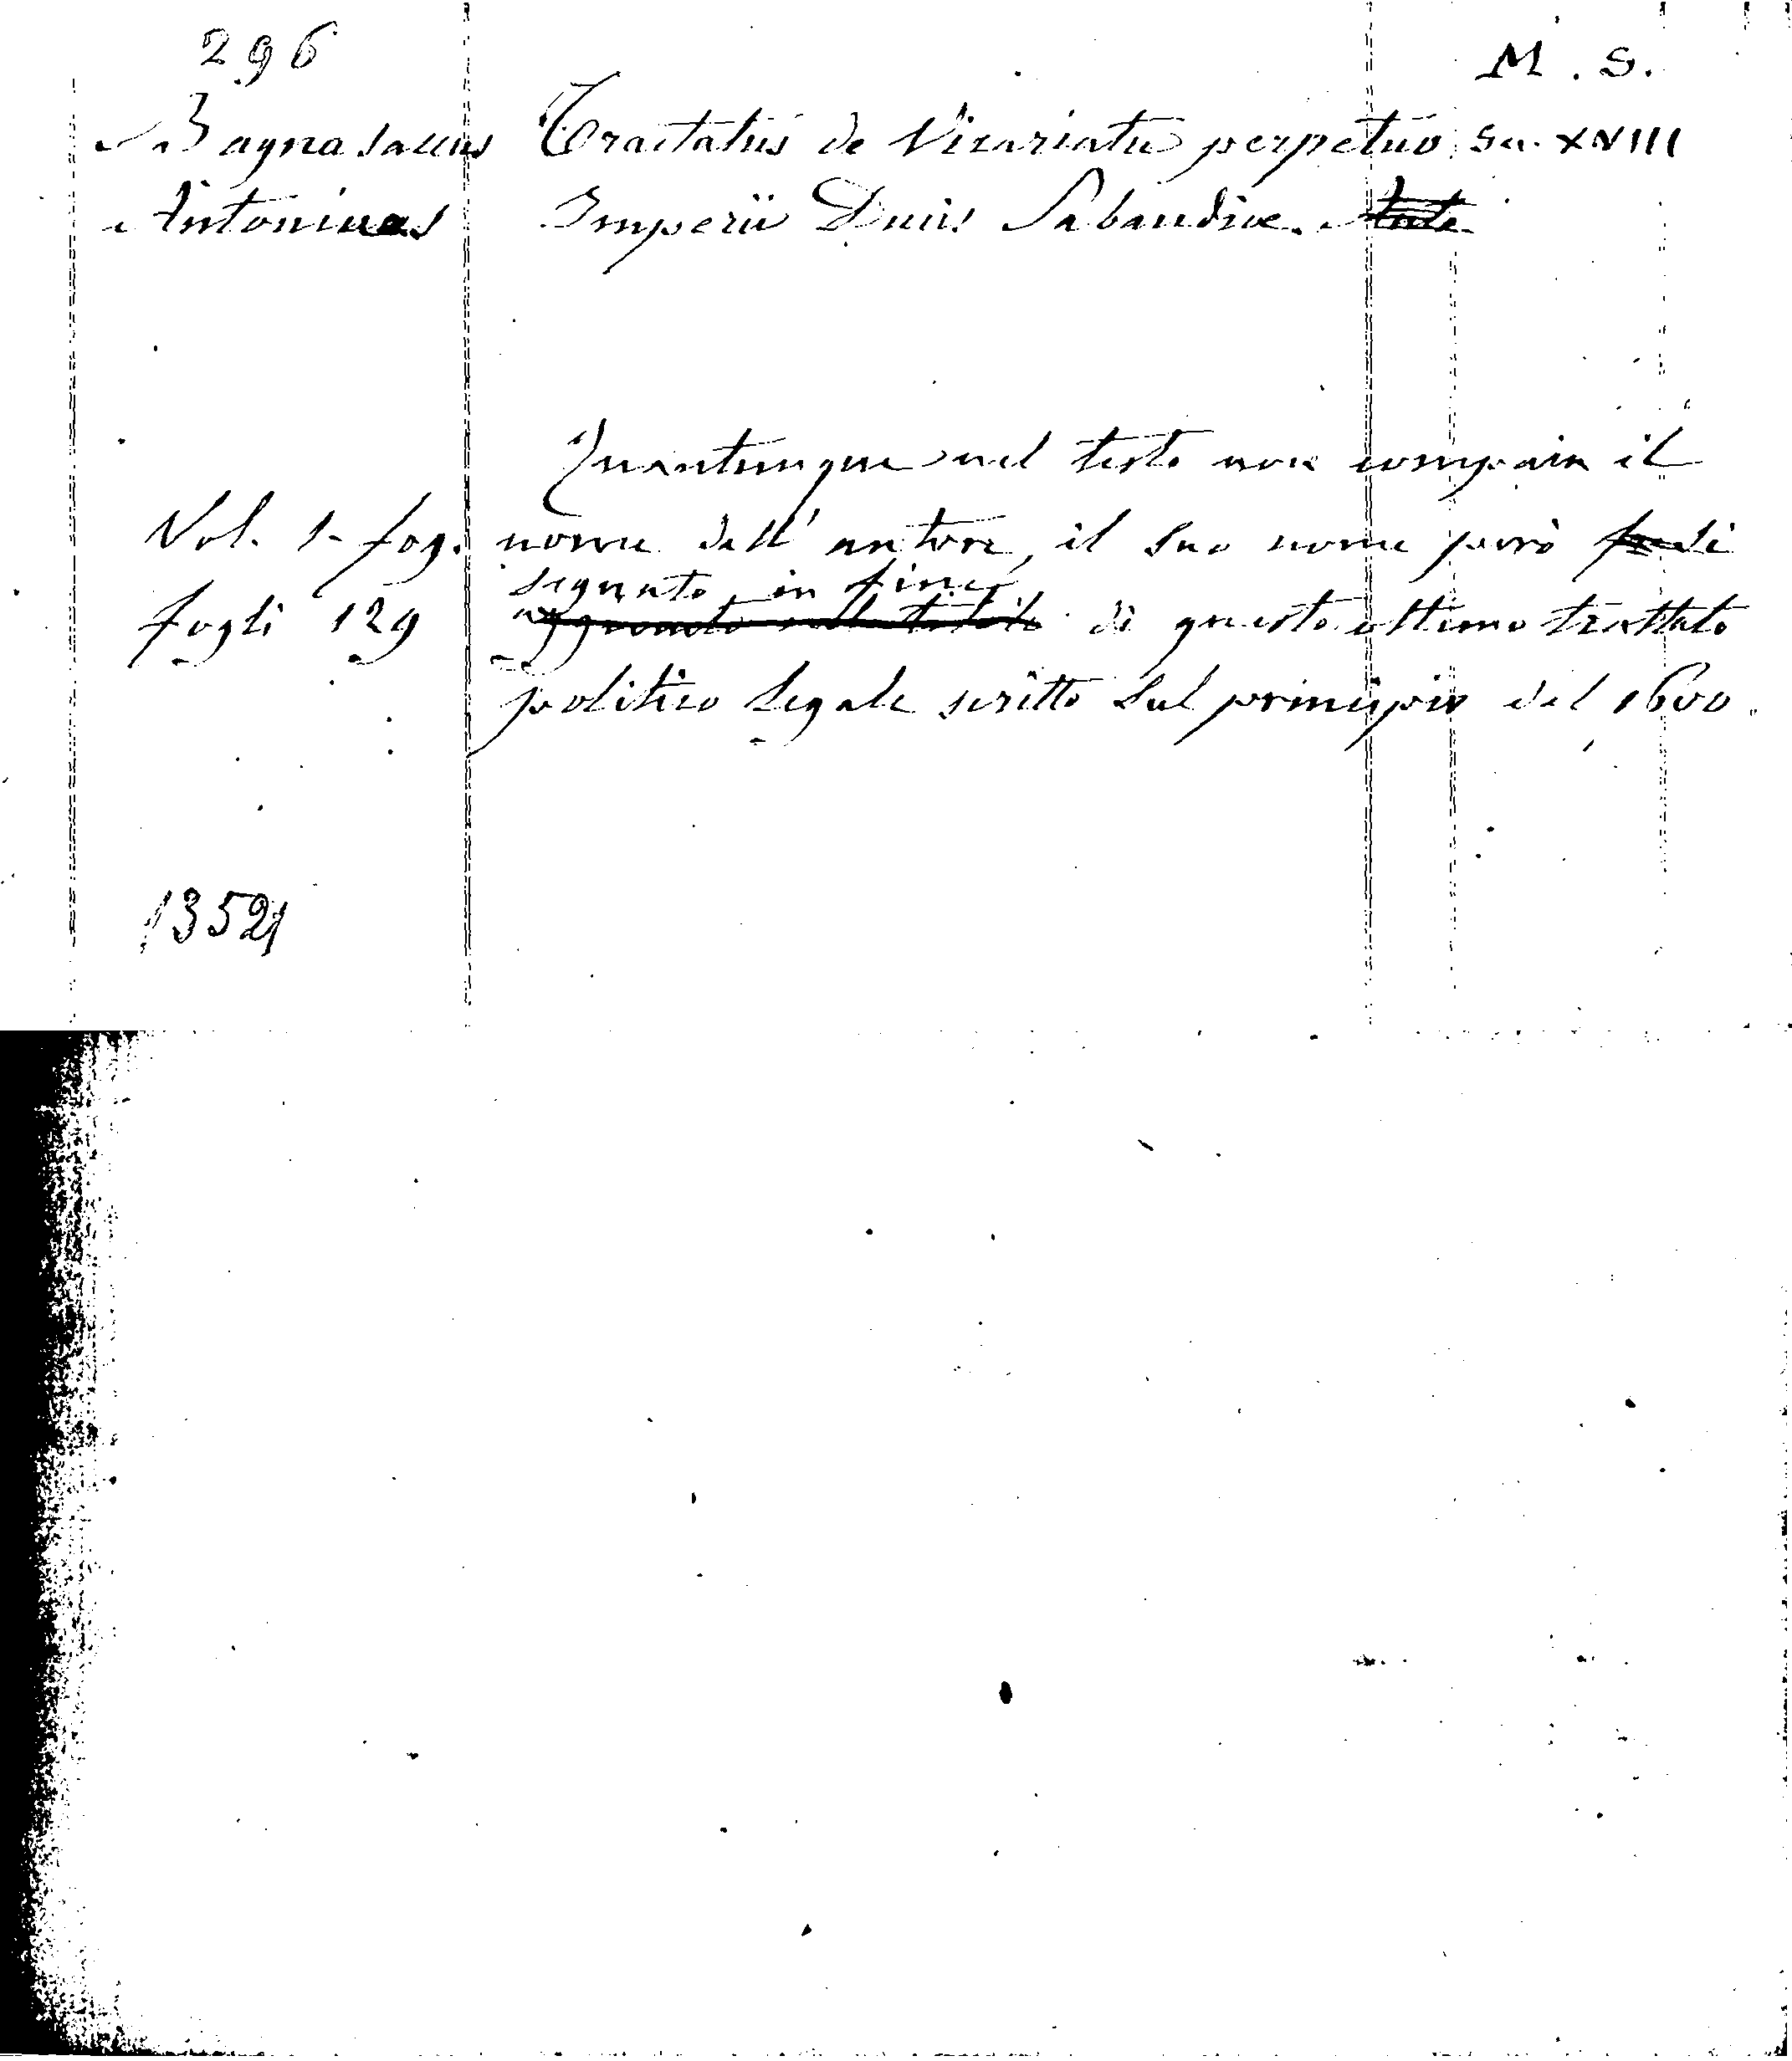 296 M. S.
Bagnasaccus Tractatus de Vicariatu perpetuo Sec. XVIII
Antoninus Imperii Ducis Sabaudiae.
Quantunque nel testo non compaia il
Vol. 1- fog. nome dell' autore, il suo nome però si
segnato in fine
fogli 129 di questo ottimo trattato
politico legale scritto sul principio del 1600.
13521